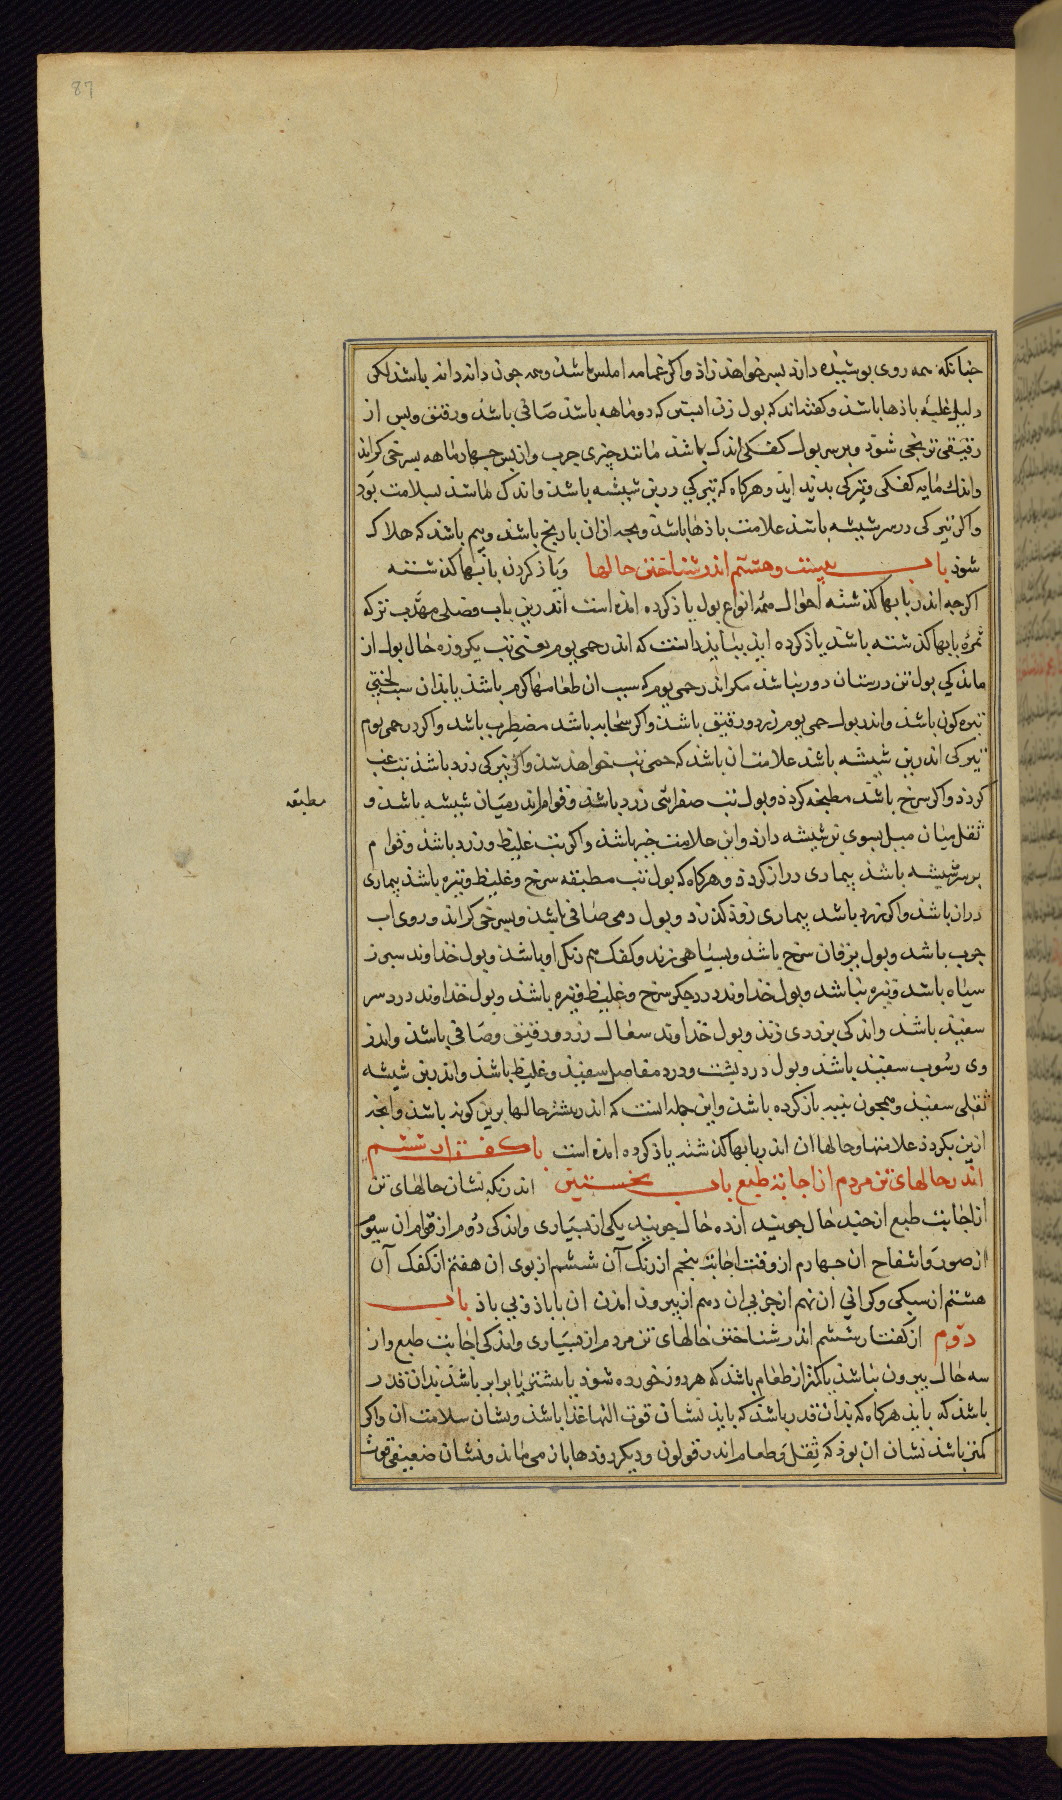 87
جنانکه همه روی بوشیذه دارد بسر خواهذ زاذ واکر غمامه املس باشذ وهمه جون دانه دانه باشذ لکن
دلیل غلبهٔ باذها باشذ وکفته‌اند که بول زن ابستن که دو ماهه باشذ صافی باشذ ورقیق وبس از
رقیقی ترنجی شوذ وبر سر بول کفکی اندک باشذ مانند چیزی جرب واز بس جهار ماهه بسرخی کراید
واندک مایه کفکی وتیرکی بدید اید وهرکاه که تیرکی در بن شیشه باشذ واندک باشذ بسلامت بود
واکر تیرکی در سر شیشه باشذ علامت باذها باشذ وبجه ازان با رنج باشذ وبیم باشذ که هلاک
شوذ باب بیست وهشتم اندر شناختن حالها وباذ کردن بابها کذشته
اکرجه اندر بابها کذشته احوال همه انواع بول یاذ کرده امده است اندرین باب فصلی مهذب ترکه
ثمرهٔ بابها کذشته باشذ یاذ کرده ایذ ببایذ دانست که اندر حمی یوم یعنی تب یکروزه حال بول از
مانندکی بول تن درستان دور نباشذ مکر اندر حمی یوم که سبب ان طعامها کرم باشذ یا بذان سبب لختی
تیره کون باشذ واندر بول حمی یوم زرد ورقیق باشذ واکر سحابه باشد مضطرب باشد واکر در حمی یوم
تیرکی اندر بن شیشه باشذ علامت ان باشذ که حمی تب خواهذ شذ واکر تیرکی زرد باشذ تب غب
کردذ واکر سرخ باشذ مطبخه کردذ وبول تب صفرائی زرد باشذ وقوام اندر میان شیشه باشذ و
مطبقه
ثفل میان میل بسوی بر شیشه دارذ واین علامت خیر باشذ واکر تب غلیظ وزرد باشذ وقوام
بر سر شیشه باشذ بیماری دراز کردذ وهرکاه که بول تب مطبقه سرخ وغلیظ وتیره باشذ بیماری
دراز باشذ واکر زرد باشد بیماری زوذ کذرد وبول دمی صافی باشذ وبسرخی کراید وروی اب
جرب باشد وبول یرقان سرخ باشذ وبسیاهی زند وکفک هم رنک او باشذ وبول خذاوند سبرز
سیاه باشد وتیره نباشد وبول خذاوند درد جکر سرخ وغلیظ وتیره باشذ وبول خذاوند درد سر
سفیذ باشذ واندکی بزردی زند وبول خذاوند سعال زرد ورقیق وصافی باشذ واندر
وی رسوب سفیذ باشذ وبول درد بشت ودرد مفاصل سفیذ وغلیظ باشذ واندر بن شیشه
ثفلی سفیذ وهمجون بنبه باز کرده باشذ واین جمله است که اندر بیشتر حالها برین کونه باشذ وانجه
ازین بکردذ علامتها وحالها ان اندر بابها کذشته یاذ کرده امده است با کفتار ششم
اندر حالهای تن مردم از اجابة طبع باب نخستین اندر انکه نشان حالهای تن
از اجابت طبع از جند حال جویند از ده حال جویند یکی از بسیاری واندکی دوم از قوام ان سیوم
از صورت واشفاح ان جهارم از وقت اجابت بنجم از رنک آن ششم از بوی ان هفتم از کفک آن
هشتم از سبکی وکرانی ان نهم از جربی ان دهم از بیرون امدن ان باباذ وبی باذ باب
دوم از کفتار ششم اندر شناختن حالهای تن مردم از بسیاری واندکی اجابت طبع واز
سه حال بیرون نباشذ یا کمتر از طعام باشذ که هر روز خورده شوذ یا بیشتر یا برابر باشذ بذان قدر
باشذ که بایذ هرکاه که بذان قدر باشذ که بایذ نشان قوت التها غذا باشذ ونشان سلامت ان واکر
کمتر باشذ نشان ان بوذ که ثفل وطعام اندر قولون ودیکر روذها باز می مانذ ونشان ضعیفی قوت